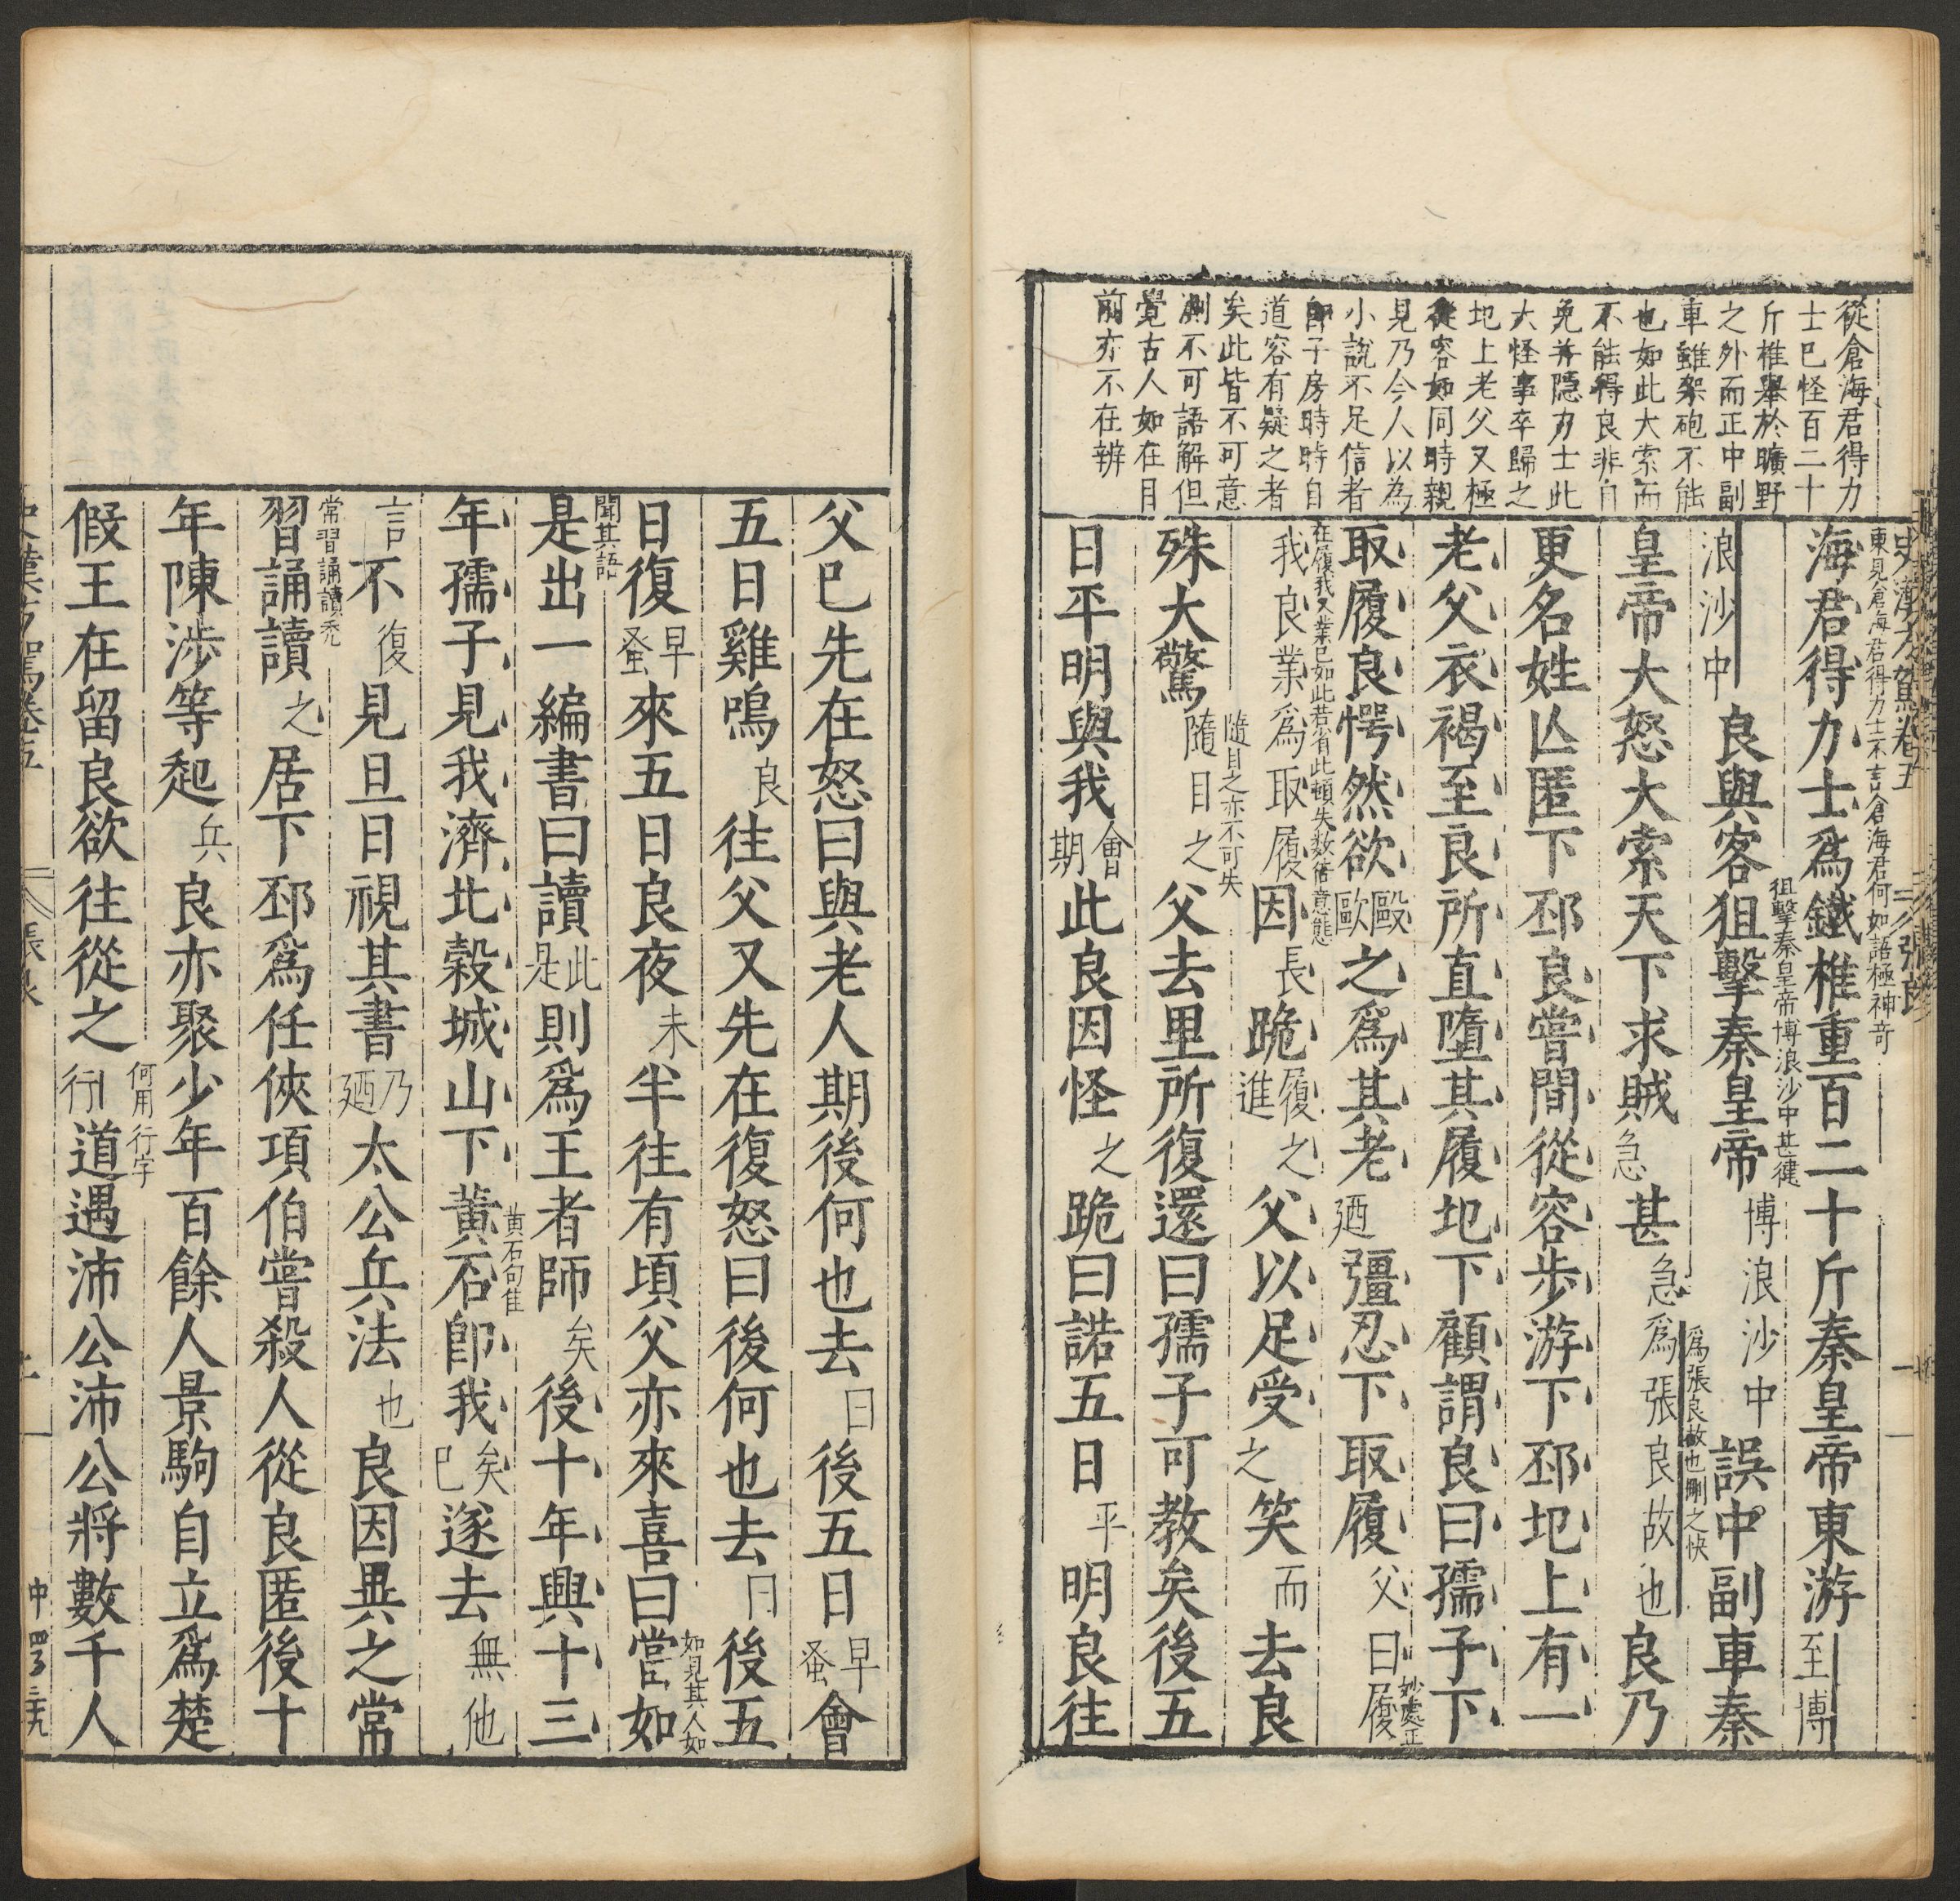 從倉海君得力
士已怪百二十
斤椎舉於曠野
之外而正中副
車雖架砲不能
也如此大索而
不能得良非自
免并隱力士此
大怪事卒歸之
圯上老父又極
從容如同時親
見乃今人以為
小說不足信者
即子房時時自
道容有疑之者
矣此皆不可意
測不可語解但
覺古人如在目
前亦不在辨
東見倉海君得力士不言倉海君何如語極神竒
海君得力士爲鐵椎重百二十斤秦皇帝東游至博
狙擊秦皇帝博浪沙中甚健
浪沙中良與客狙擊秦皇帝博浪沙中誤中副車秦
爲張良故也刪之快
皇帝大怒大索天下求賊急甚急爲張良故也良乃
更名姓亾匿下邳良嘗間從容步游下邳圯上有一
老父衣褐至良所直墮其履圯下顧謂良曰孺子下
妙處正
取履良愕然欲毆歐之爲其老廼彊忍下取履父曰履
在履我又業已如此若省此頓失数層意態
我良業爲取履因長跪履進之父以足受之笑而去良
隨目之亦不可失
殊大驚隨目之父去里所復還曰孺子可教矣後五
日平明與我會期此良因怪之跪曰諾五日平明良往
父已先在怒曰與老人期後何也去曰後五日早蚤會
五日雞鳴良往父又先在復怒曰後何也去曰後五
如見其人如
聞其語
日復早蚤來五日良夜未半往有頃父亦來喜曰當如
是出一編書曰讀此是則爲王者師矣後十年興十三
黄石句隹
年孺子見我濟北穀城山下黄石卽我矣已遂去無他
言不復見旦日視其書乃廼太公兵法也良因異之常
常習誦讀秃
習誦讀之居下邳爲任俠項伯嘗殺人從良匿後十
年陳涉等起兵良亦聚少年百餘人景駒自立爲楚
何用行字
假王在留良欲往從之行道遇沛公沛公將數千人